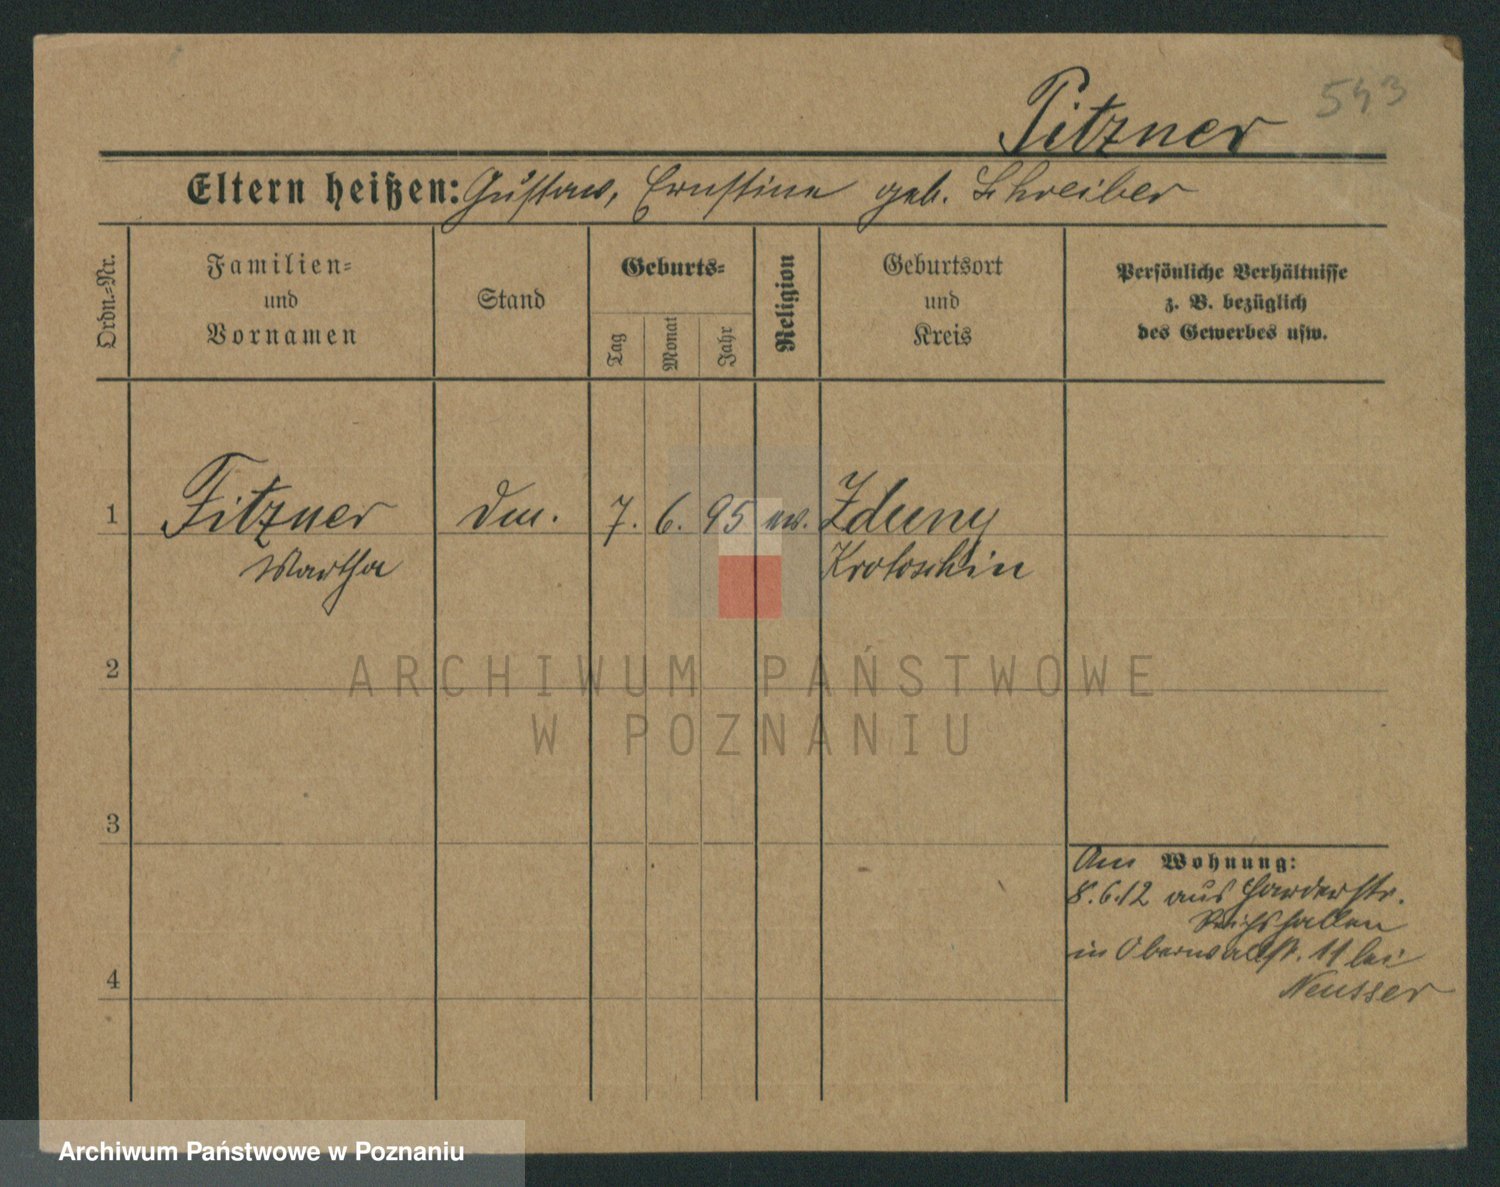 543
Pitzner
Eltern heißen: Gustav, Ernstine geb. Schreiber
Ordn.-Nr.
Familien-
und
Vornamen
Stand
Geburts-
Tag
Monat
Jahr
Religion
Geburtsort
und
Kreis
Persönliche Verhältnisse
z. B. bezüglich
des Gewerbes usw.
1 7. 6. 95 ev. Zduny
Martha Krotoschin
2
3
4
Am Wohnung:
8.6.12 aus
Reichshallen
in Oberwallstr. 11 bei
Neusser
ARCHIWUM PAŃSTWOWE
W POZNANIU
Archiwum Państwowe w Poznaniu